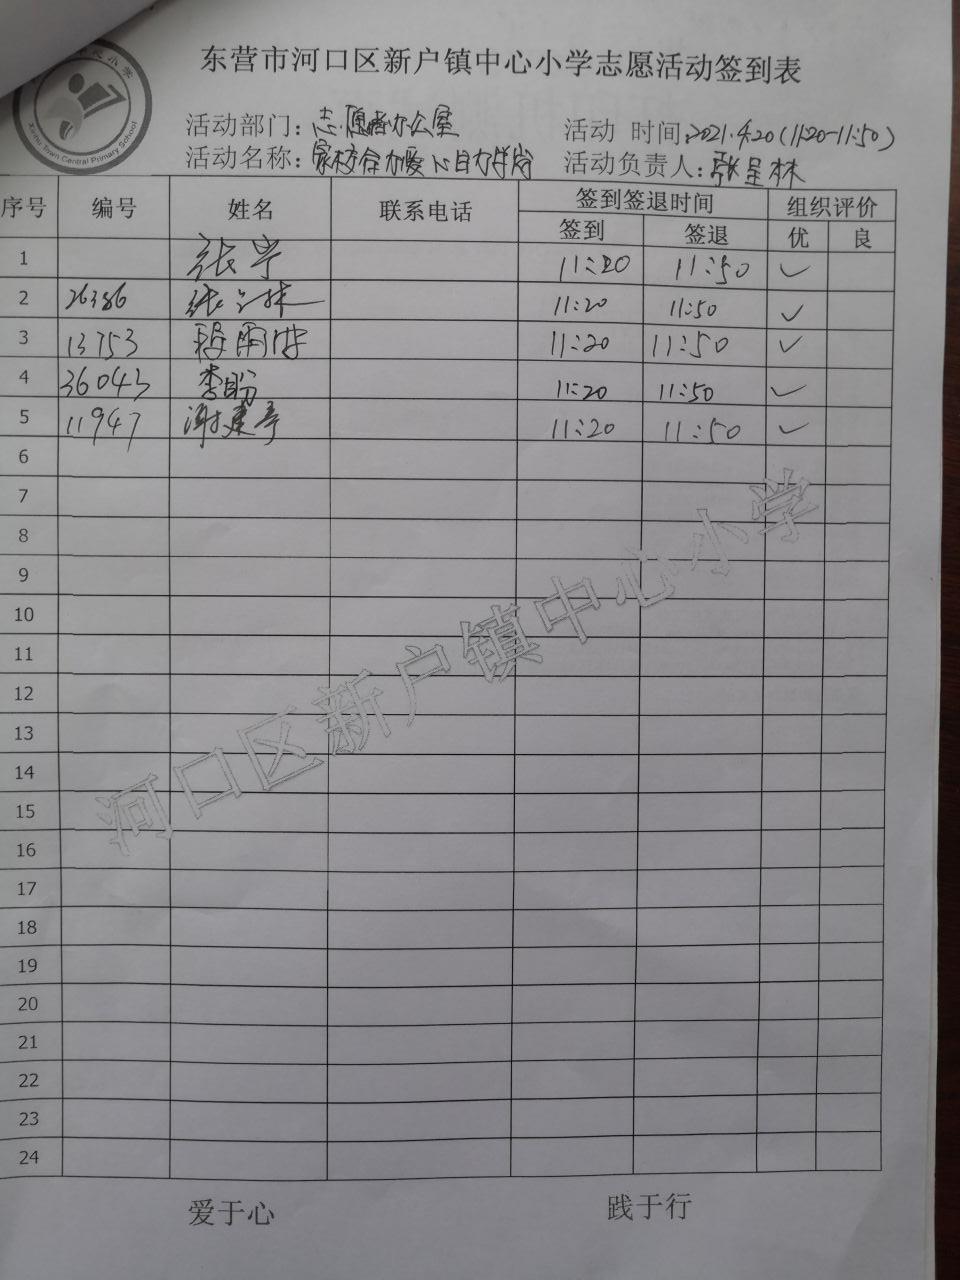 东营市河口区新户镇中心小学志愿活动签到表
活动部门：志愿者办公室 活动 时间：2021.4.20（11:20-11:50）
活动名称：家校合力爱心助学岗 活动负责人：张呈林
序号 编号 姓名 联系电话 签到签退时间 组织评价
签到 签退 优 良
1 张宁 11:20 11:50 ✓
2 26386 11:20 11:50 ✓
3 13753 11:20 11:50 ✓
4 36043 李盼 11:20 11:50 ✓
5 11947 谢建亭 11:20 11:50 ✓
6
7
8
9
10
11
12
13
14
15
16
17
18
19
20
21
22
23
24
河口区新户镇中心小学
爱于心 践于行
Xinhu Town Central Primary School